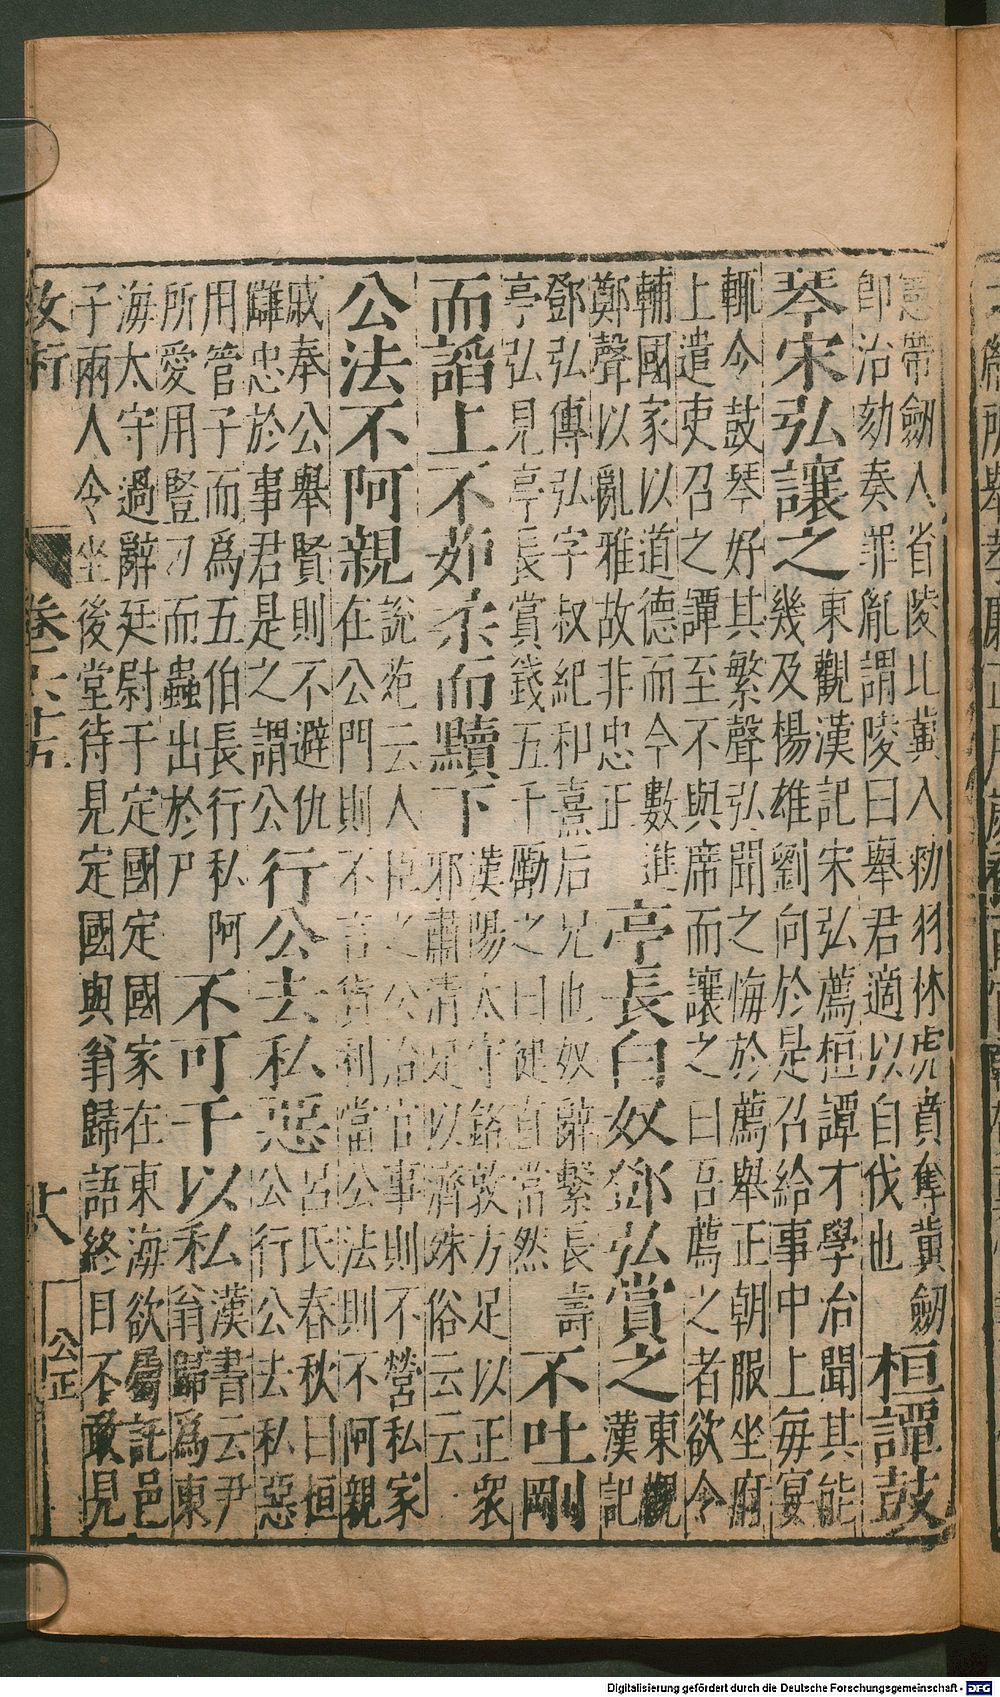 憲帶劒入省陵叱冀入勑羽林虎賁奪冀劒
卽治劾奏罪胤謂陵曰舉君適以自伐也
桓譚鼓
琴宋弘讓之
東觀漢記宋弘薦桓譚才學洽聞其能
幾及楊雄劉向於是召給事中上每宴
輒令鼓琴好其繁聲弘聞之悔於薦舉正朝服坐府
上遣吏召之譚至不與席而讓之曰吾薦之者欲令
輔國家以道德而今數進
鄭聲以亂雅故非忠正
亭長白奴鄧弘賞之
東觀
漢記
鄧弘傳弘字叔紀和熹后兄也奴辭繫長壽
亭弘見亭長賞錢五千勵之曰健直當然
不吐剛
而諂上不茹柔而黷下
漢陽太守銘敦方足以正衆
邪肅清足以濟殊俗云云
公法不阿親
說苑云人臣之公治官事則不營私家
在公門則不言貨利當公法則不阿親
戚奉公舉賢則不避仇
讎忠於事君是之謂公
行公去私惡
呂氏春秋曰桓
公行公去私惡
用管子而爲五伯長行私阿
所愛用豎刀而蟲出於戶
不可干以私
漢書云尹
翁歸爲東
海太守過辭廷尉于定國定國家在東海欲屬託邑
子兩人令坐後堂待見定國與翁歸語終日不敢見
政術
卷六十五
十八
公正
Digitalisierung gefördert durch die Deutsche Forschungsgemeinschaft - DFG